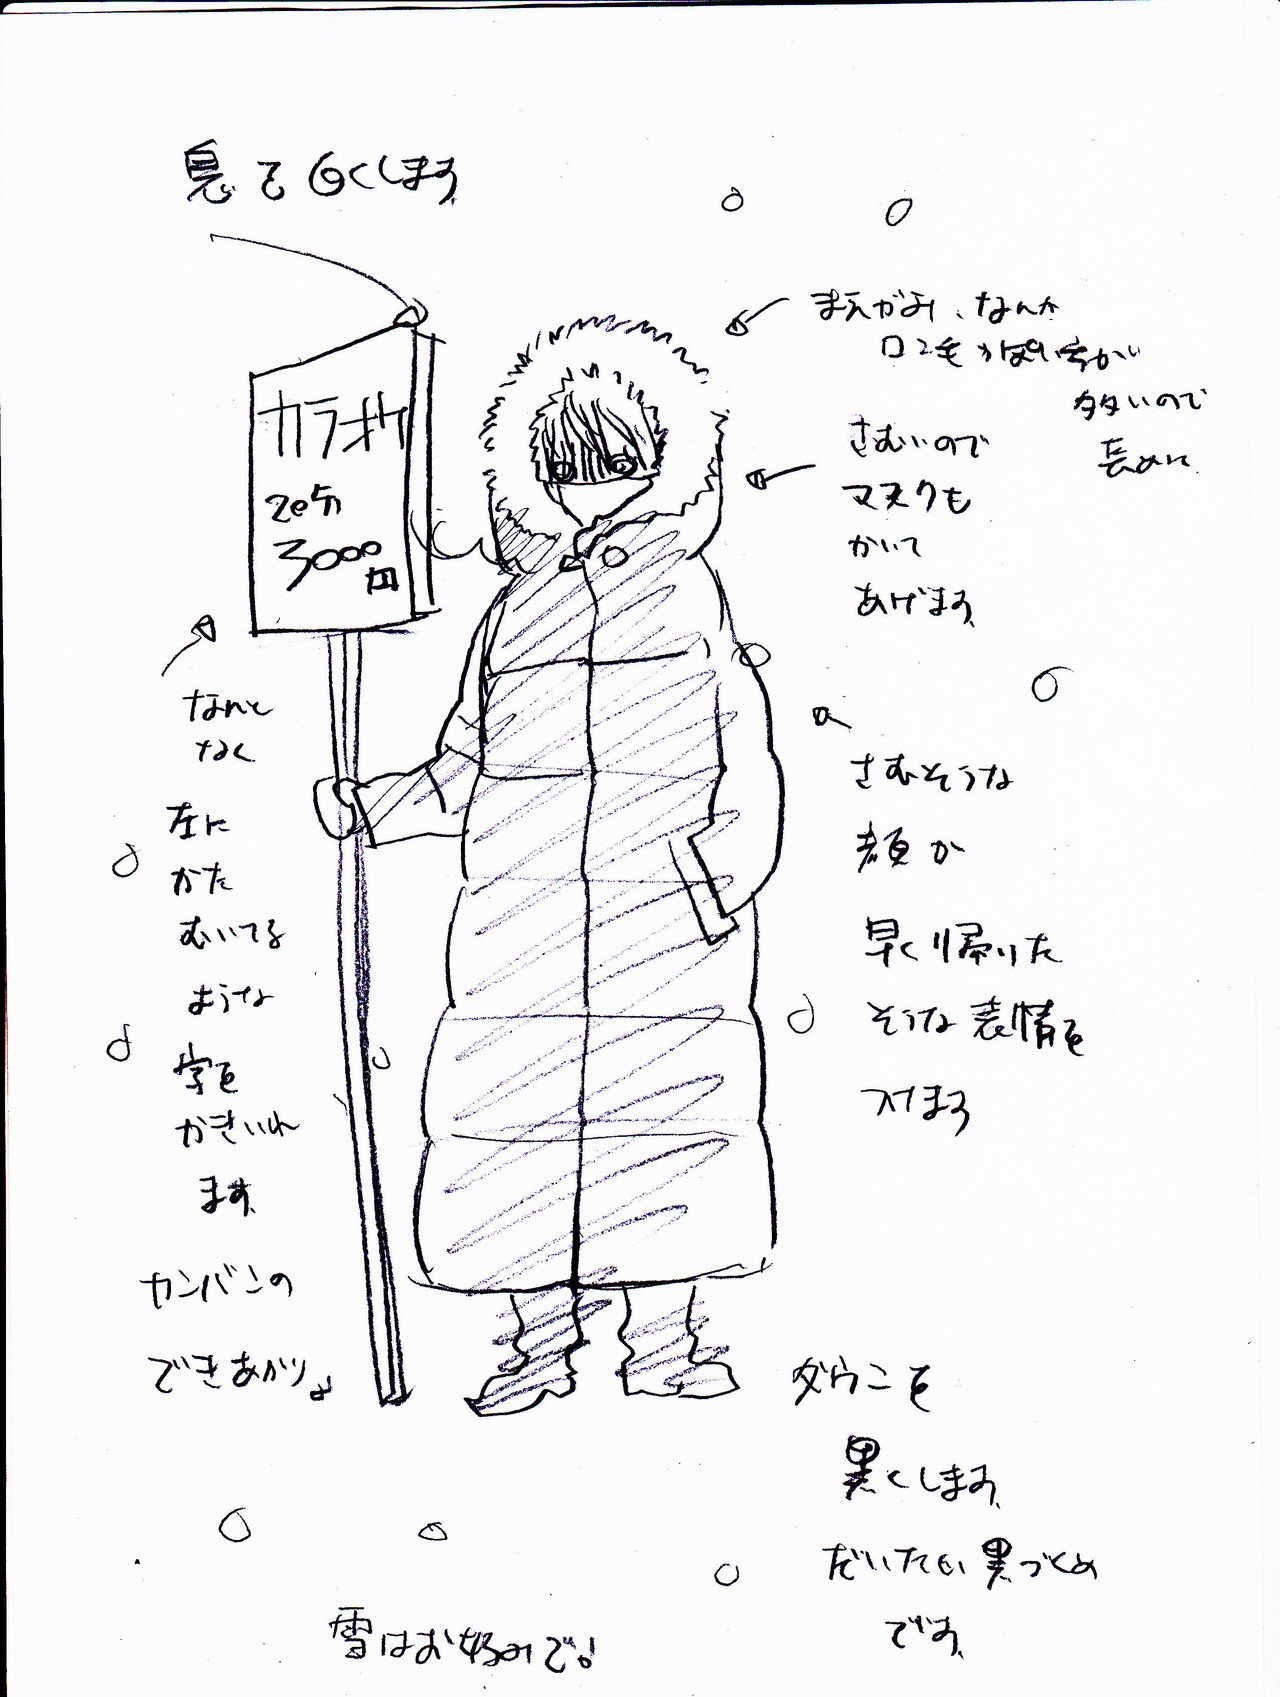 息も白くします
カラオケ
20分
3000
円
なんと
なく
左に
かた
むいてる
ような
字を
かきいれ
ます
カンバンの
できあがり
まえがみ、なんか
多いので
長めに
さむいので
マスクも
かいて
あげます
さむそうな
顔か
早く帰りた
そうな表情を
つけます
ダウンを
黒くします
だいたい黒づくめ
です
雪はお好みで!